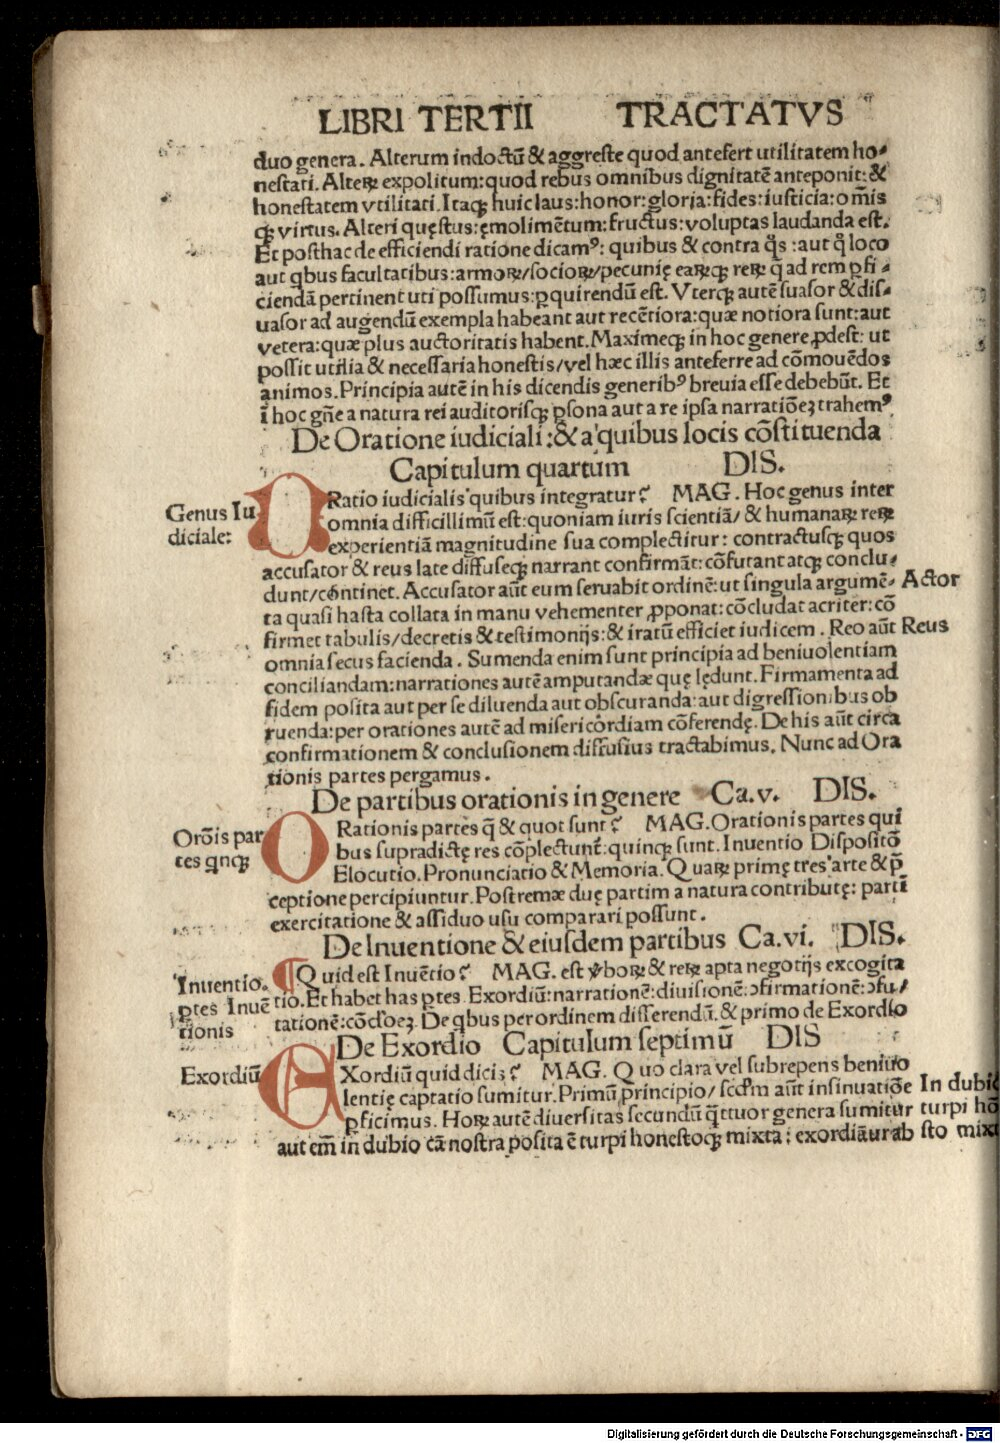 LIBRI TERTII TRACTATVS
duo genera. Alterum indoctũ & aggreste quod antefert utilitatem ho⸗
nestati. Alteꝝ expolitum: quod rebus omnibus dignitatẽ anteponit: &
honestatem vtilitati. Itaqꝫ huic laus: honor: gloria: fides: iusticia: om̃is
qꝫ virtus. Alteri quęstus: ęmolimẽtum: fructus: voluptas laudanda est.
Et posthac de efficiendi ratione dicamꝰ: quibus & contra q̃s: aut q̃ loco
aut qbus facultatibus: armoꝝ/socioꝝ/pecunię eaꝝqꝫ reꝝ q̃ ad rem ꝑfi⸗
ciendã pertinent uti possumus: ꝑquirendũ est. Vterqꝫ autẽ suasor & dis⸗
uasor ad augendũ exempla habeant aut recẽtiora: quæ notiora sunt: aut
vetera: quæ plus auctoritatis habent. Maximeqꝫ in hoc genere ꝓdest: ut
possit utilia & necessaria honestis/vel hæc illis anteferre ad cõmouẽdos
animos. Principia autẽ in his dicendis generibꝰ breuia esse debebũt. Et
ĩ hoc gñe a natura rei auditorisqꝫ ꝑsona aut a re ipsa narratiõeꝫ trahemꝰ.
De Oratione iudiciali: & a quibus locis cõstituenda
Capitulum quartum DIS.
Genus Iu
diciale:
ORatio iudicialis quibus integratur? MAG. Hoc genus inter
omnia difficillimũ est: quoniam iuris scientiã/ & humanaꝝ reꝝ
experientiã magnitudine sua complectitur: contractusqꝫ quos
accusator & reus late diffuseqꝫ narrant confirmãt: cõfutant atqꝫ conclu⸗
dunt/cõntinet. Accusator aũt eum seruabit ordinẽ: ut singula argumẽ⸗
Actor
ta quasi hasta collata in manu vehementer ꝓponat: cõcludat acriter: cõ
firmet tabulis/decretis & testimonijs: & iratũ efficiet iudicem. Reo aũt
Reus
omnia secus facienda. Sumenda enim sunt principia ad beniuolentiam
conciliandam: narrationes autẽ amputandæ quę lędunt. Firmamenta ad
fidem posita aut per se diluenda aut obscuranda: aut digressionibus ob
ruenda: per orationes autẽ ad misericordiam cõferendę. De his aũt circa
confirmationem & conclusionem diffusius tractabimus. Nunc ad Ora
tionis partes pergamus.
De partibus orationis in genere Ca.v. DIS.
Orõis par
tes qnqꝫ
ORationis partes q̃ & quot sunt? MAG. Orationis partes qui
bus supradictę res cõplectunt̃: quinqꝫ sunt. Inuentio Dispositõ
Elocutio. Pronunciatio & Memoria. Quaꝝ primę tres arte & p̃
ceptione percipiuntur. Postremæ duę partim a natura contributę: partĩ
exercitatione & assiduo usu comparari possunt.
De Inuentione & eiusdem partibus Ca.vi. DIS.
Inuentio.
ꝑtes Inuẽ
tionis
¶Quid est Inuẽtio? MAG. est v̾boꝝ & reꝝ apta negotijs excogita
tio. Et habet has ꝑtes. Exordiũ: narrationẽ: diuisionẽ: ↄfirmationẽ: ↄfu⸗
tationẽ: cõcl̃oeꝫ. De qbus per ordinem disserendũ. & primo de Exordio
De Exordio Capitulum septimũ DIS
Exordiũ
EXordiũ quid diciꝫ? MAG. Quo clara vel subrepens beniuo
lentię captatio sumitur. Primũ principio/ scd̃m aũt insinuatiõe
In dubi
ꝑficimus. Hoꝝ autẽ diuersitas secundũ q̃ttuor genera sumitur
turpi hõ
aut em̃ in dubio cã nostra posita ẽ turpi honestoqꝫ mixta: exordiã̃urab
sto mixt
Digitalisierung gefördert durch die Deutsche Forschungsgemeinschaft - DFG